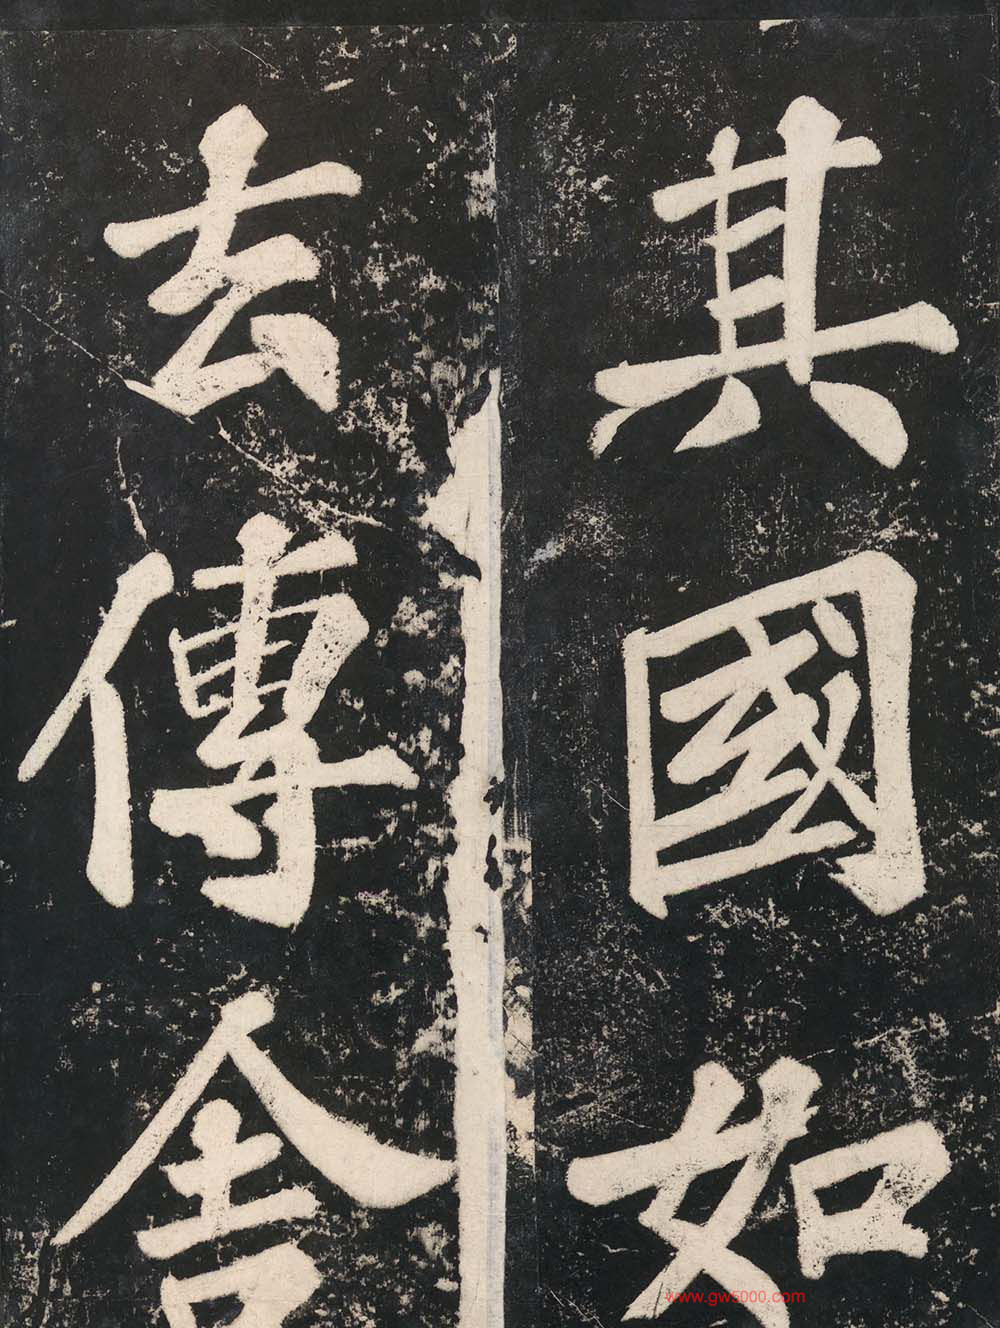 其國如
去傳舍
www.gw5000.com